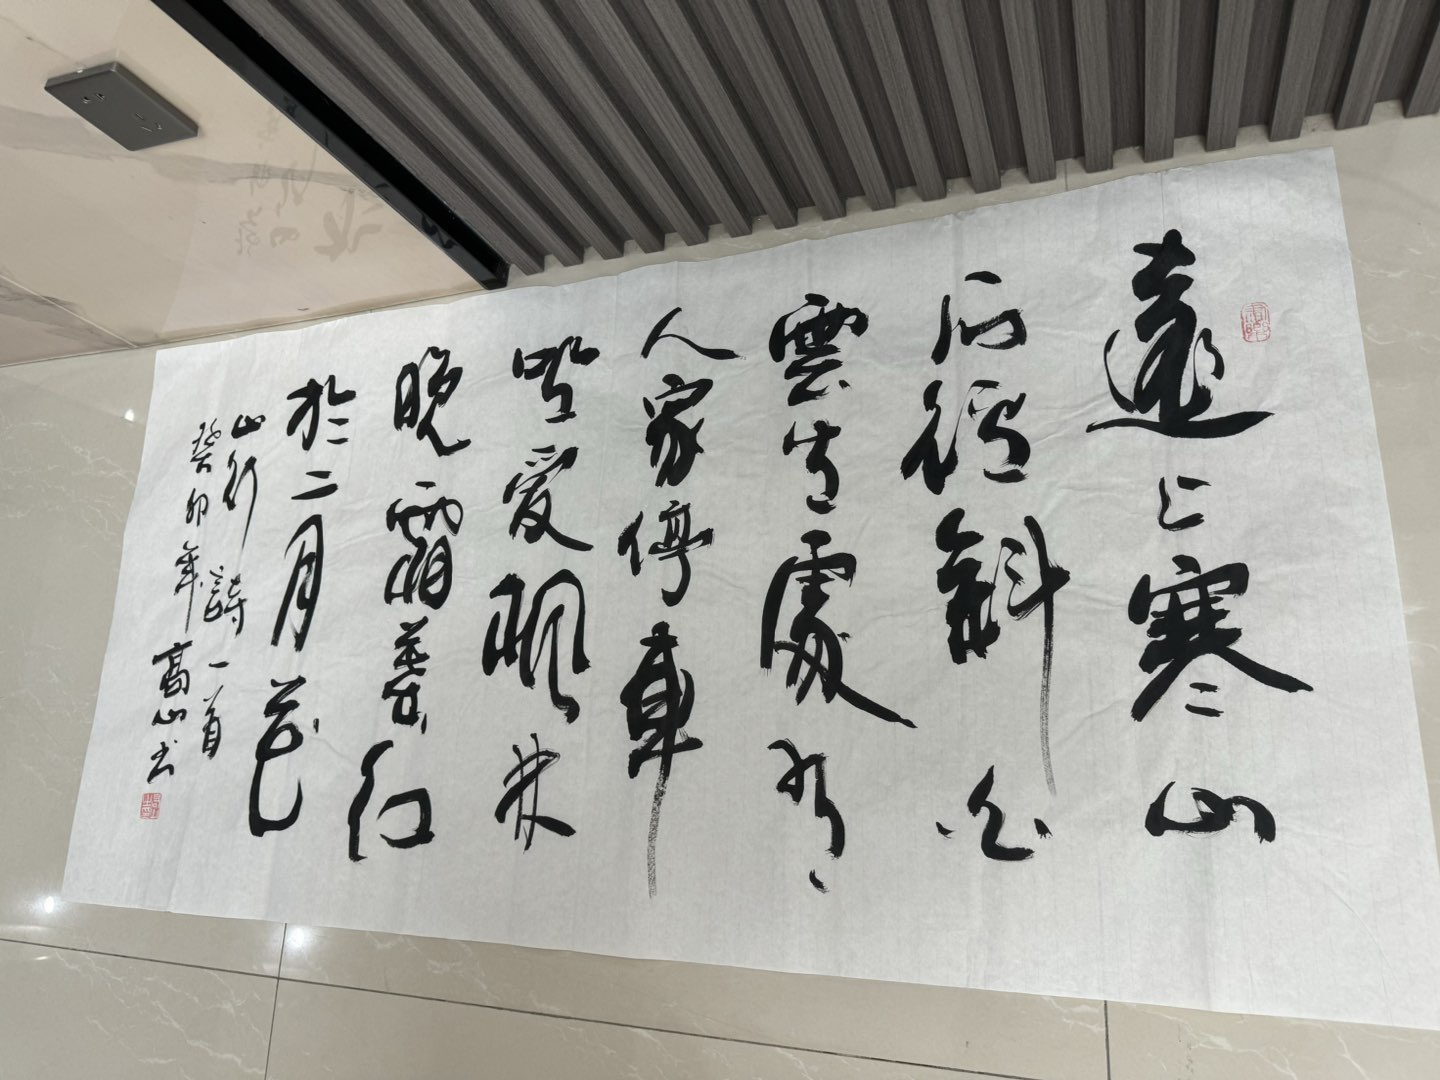 遠上寒山
石徑斜白
雲生處有
人家停車
坐愛楓林
晚霜葉紅
於二月花
山行詩一首
癸卯年高山书